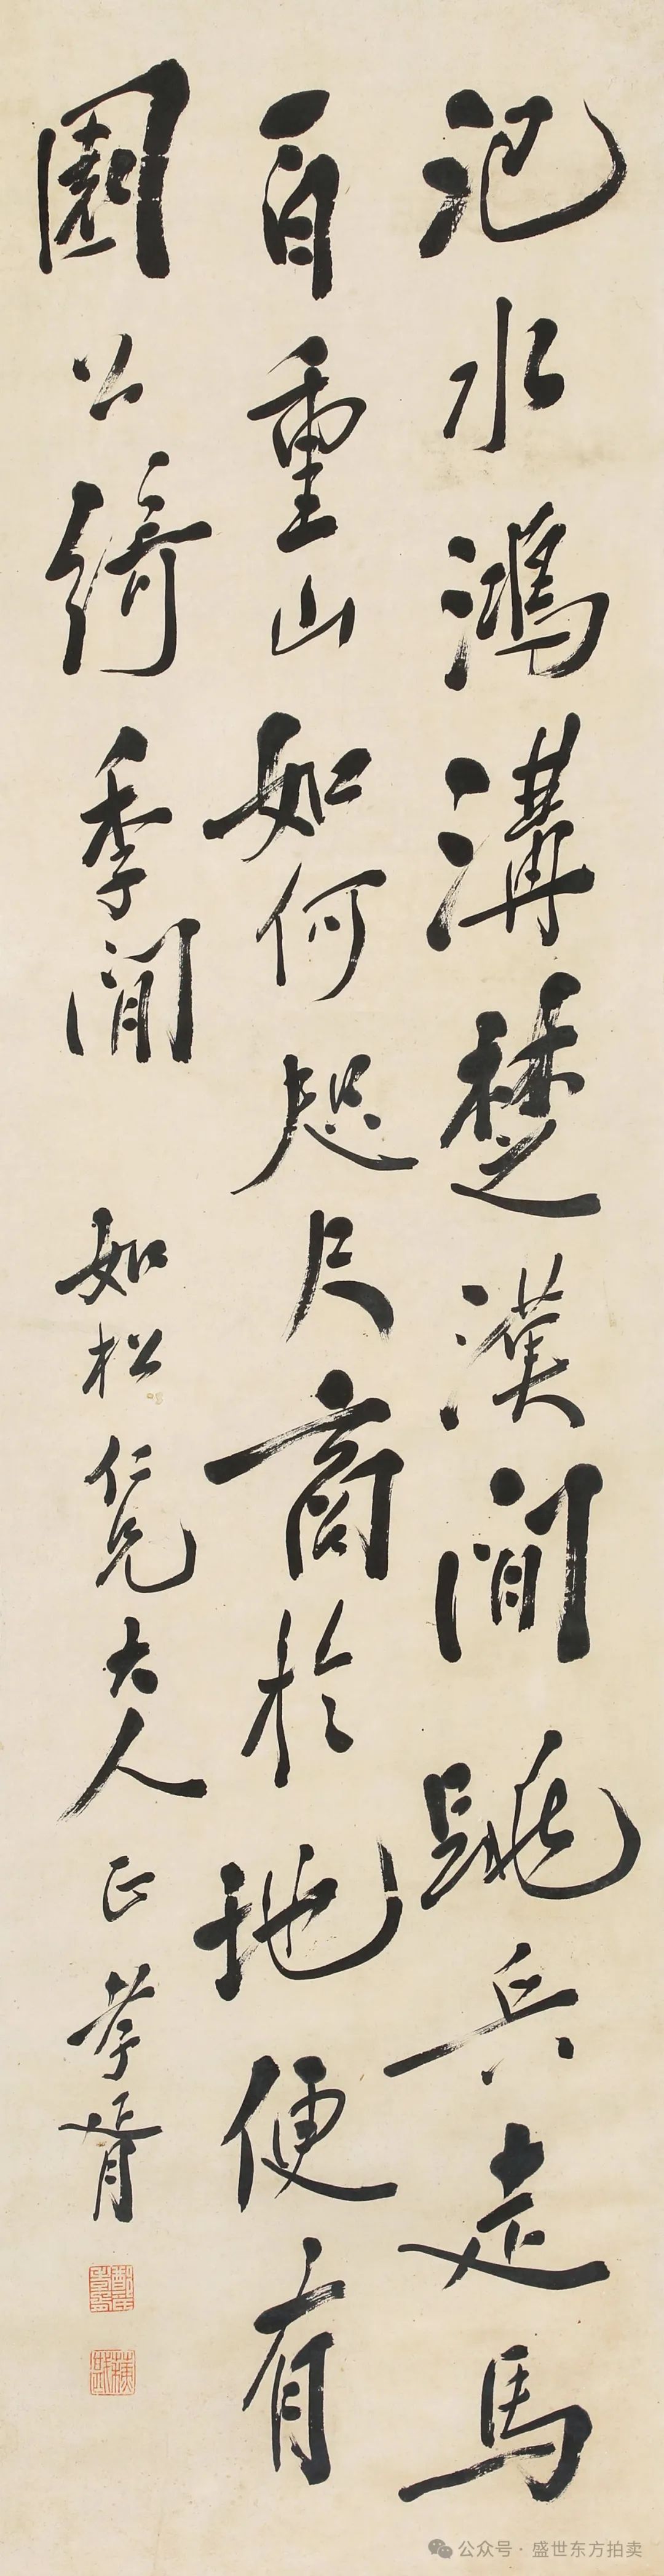 汜水鴻溝楚漢間跳兵走馬
百重山如何咫尺商於地便有
園公綺季閒
如松仁兄大人正孝胥
公众号·盛世东方拍卖